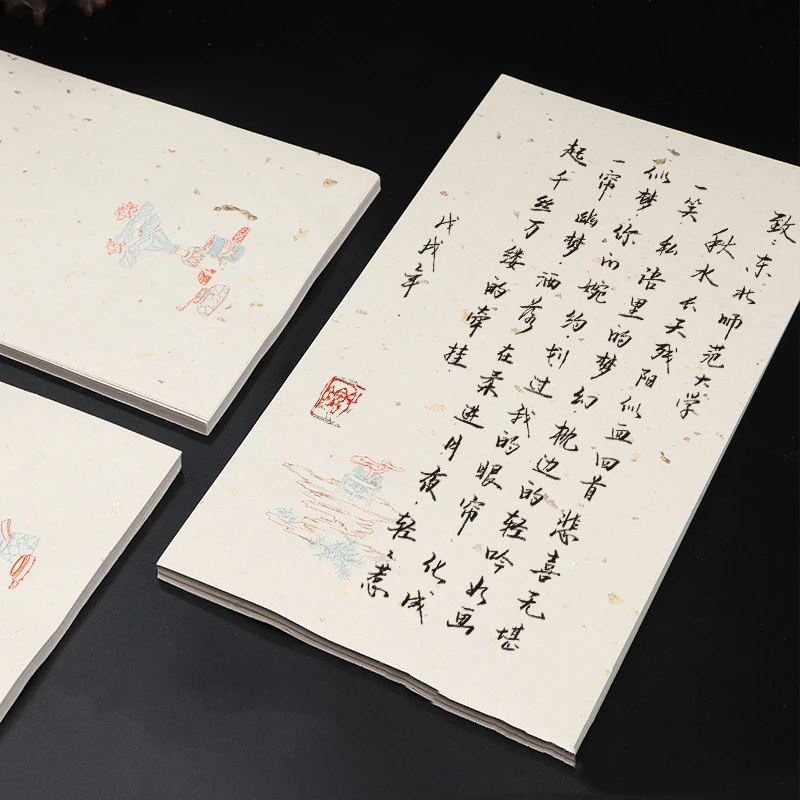 致:东北师范大学
秋水长天残阳似血回首悲喜无堪
一笑私语里的梦幻枕边的轻吟如画
似梦你的婉约刻过我的眼帘化成
一帘幽梦洒落在柔进月夜轻:惹
起千丝万缕的牵挂
戊戌之年